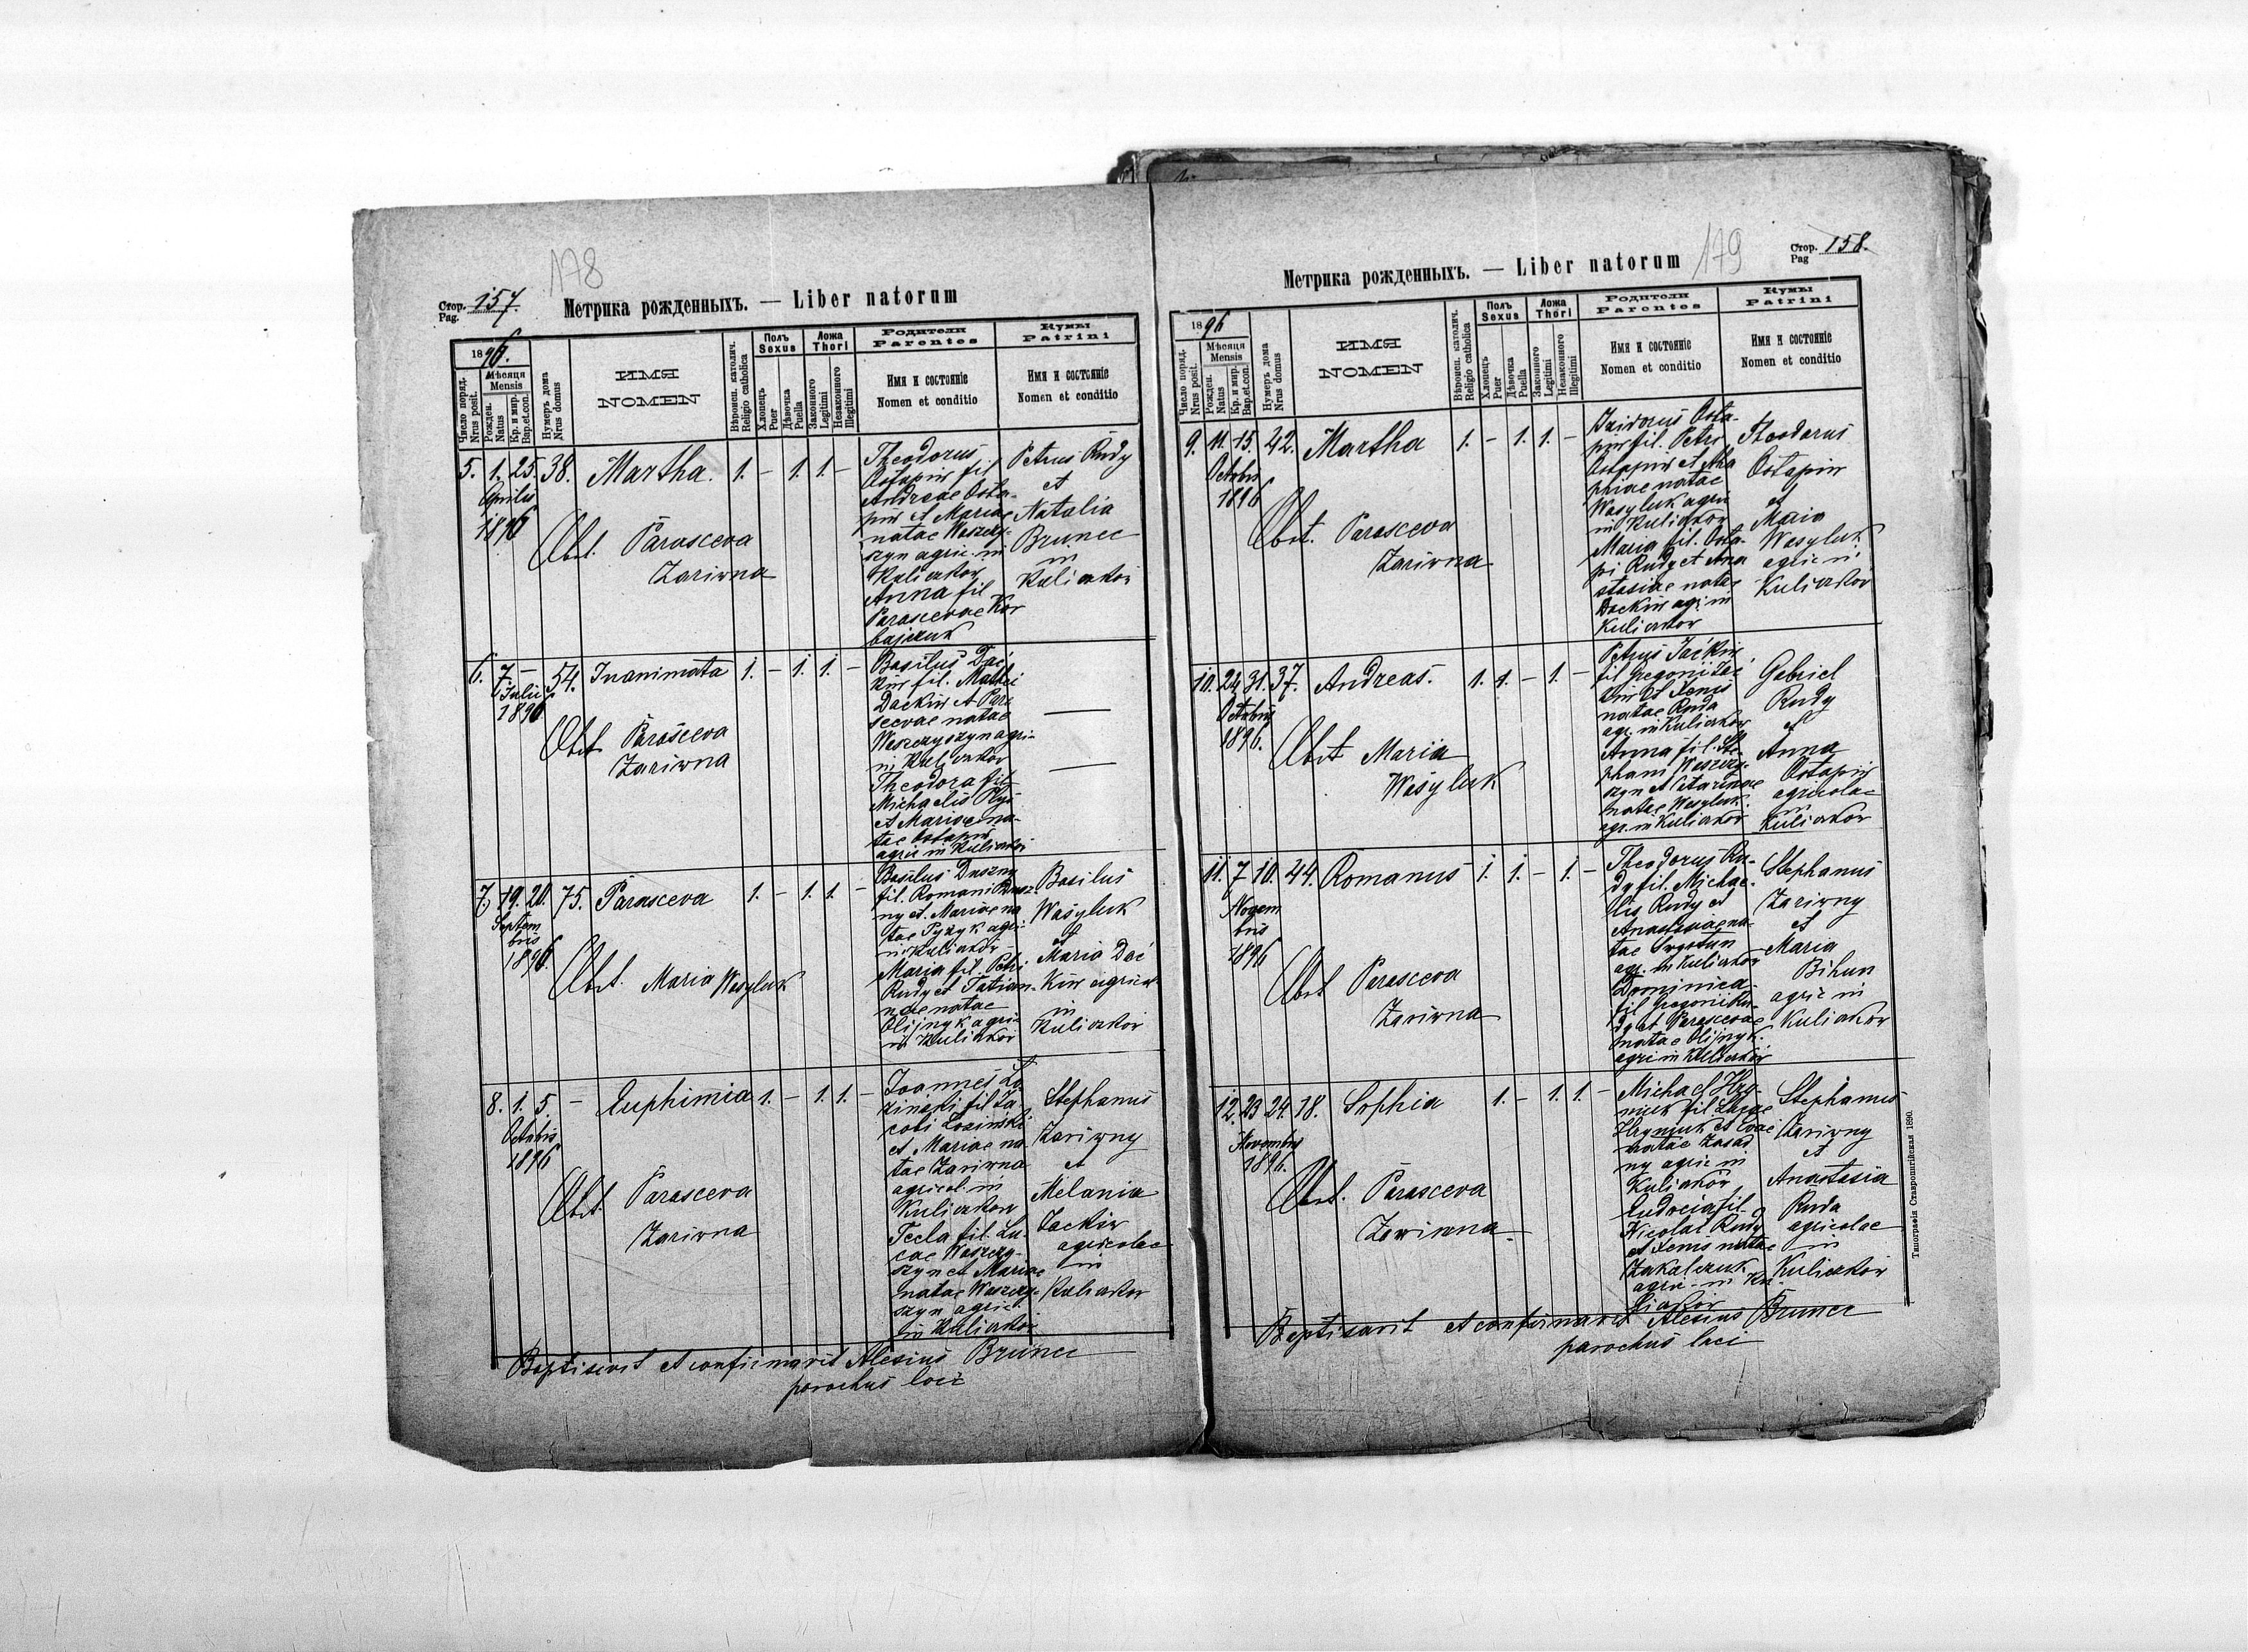 178
Стор.
Pag. 157.
Метрика рожденныхъ. — Liber natorum
1896.
Число поряд.
Nrus posit.
Мѣсяця
Mensis
Рожден.
Natus
Кр. и мир.
Bap. et con.
Нумеръ дома
Nrus domus
ИМЯ
NOMEN
Вѣроисп. католич.
Religio catholica
Полъ
Sexus
Хлопець
Puer
Дѣвочка
Puella
Ложа
Thori
Законного
Legitimi
Незаконного
Illegitimi
Родители
Parentes
Имя и состоянiе
Nomen et conditio
Кумы
Patrini
Имя и состоянiе
Nomen et conditio
5. 1. 25. 38. Martha. 1. – 1. 1. –
Aprilis
1896
Obst. Parasceva
Zariwna
Theodorus
Ostapiw fil
Andreae Osta-
piw et Mariae
natae Waszczy-
szyn agric. in
Kuliczkow
Anna fil
Parascevae Kor
bajczuk
Petrus Rudy
et
Natalia
Brunec
in
Kuliczkow
6. 7 – 54. Inanimata 1. – 1. 1. –
Julii
1896
Obst Parasceva
Zariwna
Basilus Dać
kiw fil. Mathei
Daćkiw et Para
scevae natae
Waszczyszyn agri-
in Kuliczkow
Theodora fil
Michaelis
et Mariae na-
tae Ostapiw
agric in Kuliczkow
7. 19. 20. 75. Parasceva 1. – 1. 1. –
Septem
bris
1896.
Obst. Maria Wasyluk
Basilus Duszny
fil. Romani Dusz-
ny et Mariae na
tae Pyzyk agri-
in Kuliczkow
Maria fil. Petri
Rudy et Tatian-
nae natae
Olijnyk agric
in Kuliczkow
Basilus
Wasyluk
et
Maria Dać
kiw agricol-
in
Kuliczkow
8. 1. 5. – Euphimia 1. – 1. 1. –
Octobris
1896
Obst. Parasceva
Zariwna
Joannes Lo
zinski fil Ja
cobi Lozinski
et Mariae na
tae Zariwna
agricol. in
Kuliczkow
Tecla fil. Lu-
cae Waszczy-
szyn et Mariae
natae Waszczy-
szyn agric.
in Kuliczkow
Stephanus
Zariwny
et
Melania
Jackiw
agricolae
in
Kuliczkow
Baptisavit et confirmavit Alesius Brunec
parochus loci
179
Стор.
Pag 158.
Метрика рожденныхъ. — Liber natorum
1896
Число поряд.
Nrus posit.
Мѣсяця
Mensis
Рожден.
Natus
Кр. и мир.
Bap. et con.
Нумеръ дома
Nrus domus
ИМЯ
NOMEN
Вѣроисп. католич.
Religio catholica
Полъ
Sexus
Хлопець
Puer
Дѣвочка
Puella
Ложа
Thori
Законного
Legitimi
Незаконного
Illegitimi
Родители
Parentes
Имя и состоянiе
Nomen et conditio
Кумы
Patrini
Имя и состоянiе
Nomen et conditio
9. 11. 15. 42. Martha 1. – 1. 1. –
Octobris
1896
Obst. Parasceva
Zariwna
Isidorus Osta-
piw fil. Petri
Ostapiw et Aga
phiae natae
Wasyluk agric
in Kuliczkow
Maria fil. Osta-
pi Rudy et Ana
stasiae natae
Daćkiw agr. in
Kuliczkow
Theodorus
Ostapiw
et
Maria
Wasyluk
agric in
Kuliczkow
10. 24. 31. 37. Andreas. 1. 1. – 1. –
Octobris
1896.
Obst Maria
Wasyluk
Petrus Jaćkiw
fil Gregorii Jać
kiw et Xenis
natae Ruda
agr. in Kuliczkow
Anna fil. Ste-
phani Waszczy-
szyn et Catarinae
natae Wasyluk
agr. in Kuliczkow
Gabriel
Rudy
et
Anna
Ostapiw
agricolae
in
Kuliczkow
11. 7 10. 44. Romanus 1. 1. – 1. –
Novem
bris
1896
Obst Parasceva
Zariwna
Theodorus Ru-
dy fil. Michae-
lis Rudy et
Anastasiae na-
tae
agr. in Kuliczkow
Dominica
fil Gregorii Ru-
dy et Parascevae
natae Olijnyk
agric in Kuliczkow
Stephanus
Zariwny
et
Maria
Bihun
agric in
Kuliczkow
12. 23 24. 18. Sophia 1. – 1. 1. –
Novembris
1896.
Obst. Parasceva
Zariwna
Michael Hry-
niuk fil Lucae
Hryniuk et Evae
natae Zasad
ny agric in
Kuliczkow
Eudocia fil.
Nicolai Rudy
et Xenis natae
Zakalczuk
agric. in Ku-
liczkow
Stephanus
Zariwny
et
Anastasia
Ruda
agricolae
in
Kuliczkow
Baptisavit et confirmavit Alesius Brunec
parochus loci
Типографiя Ставропигiйская 1890.